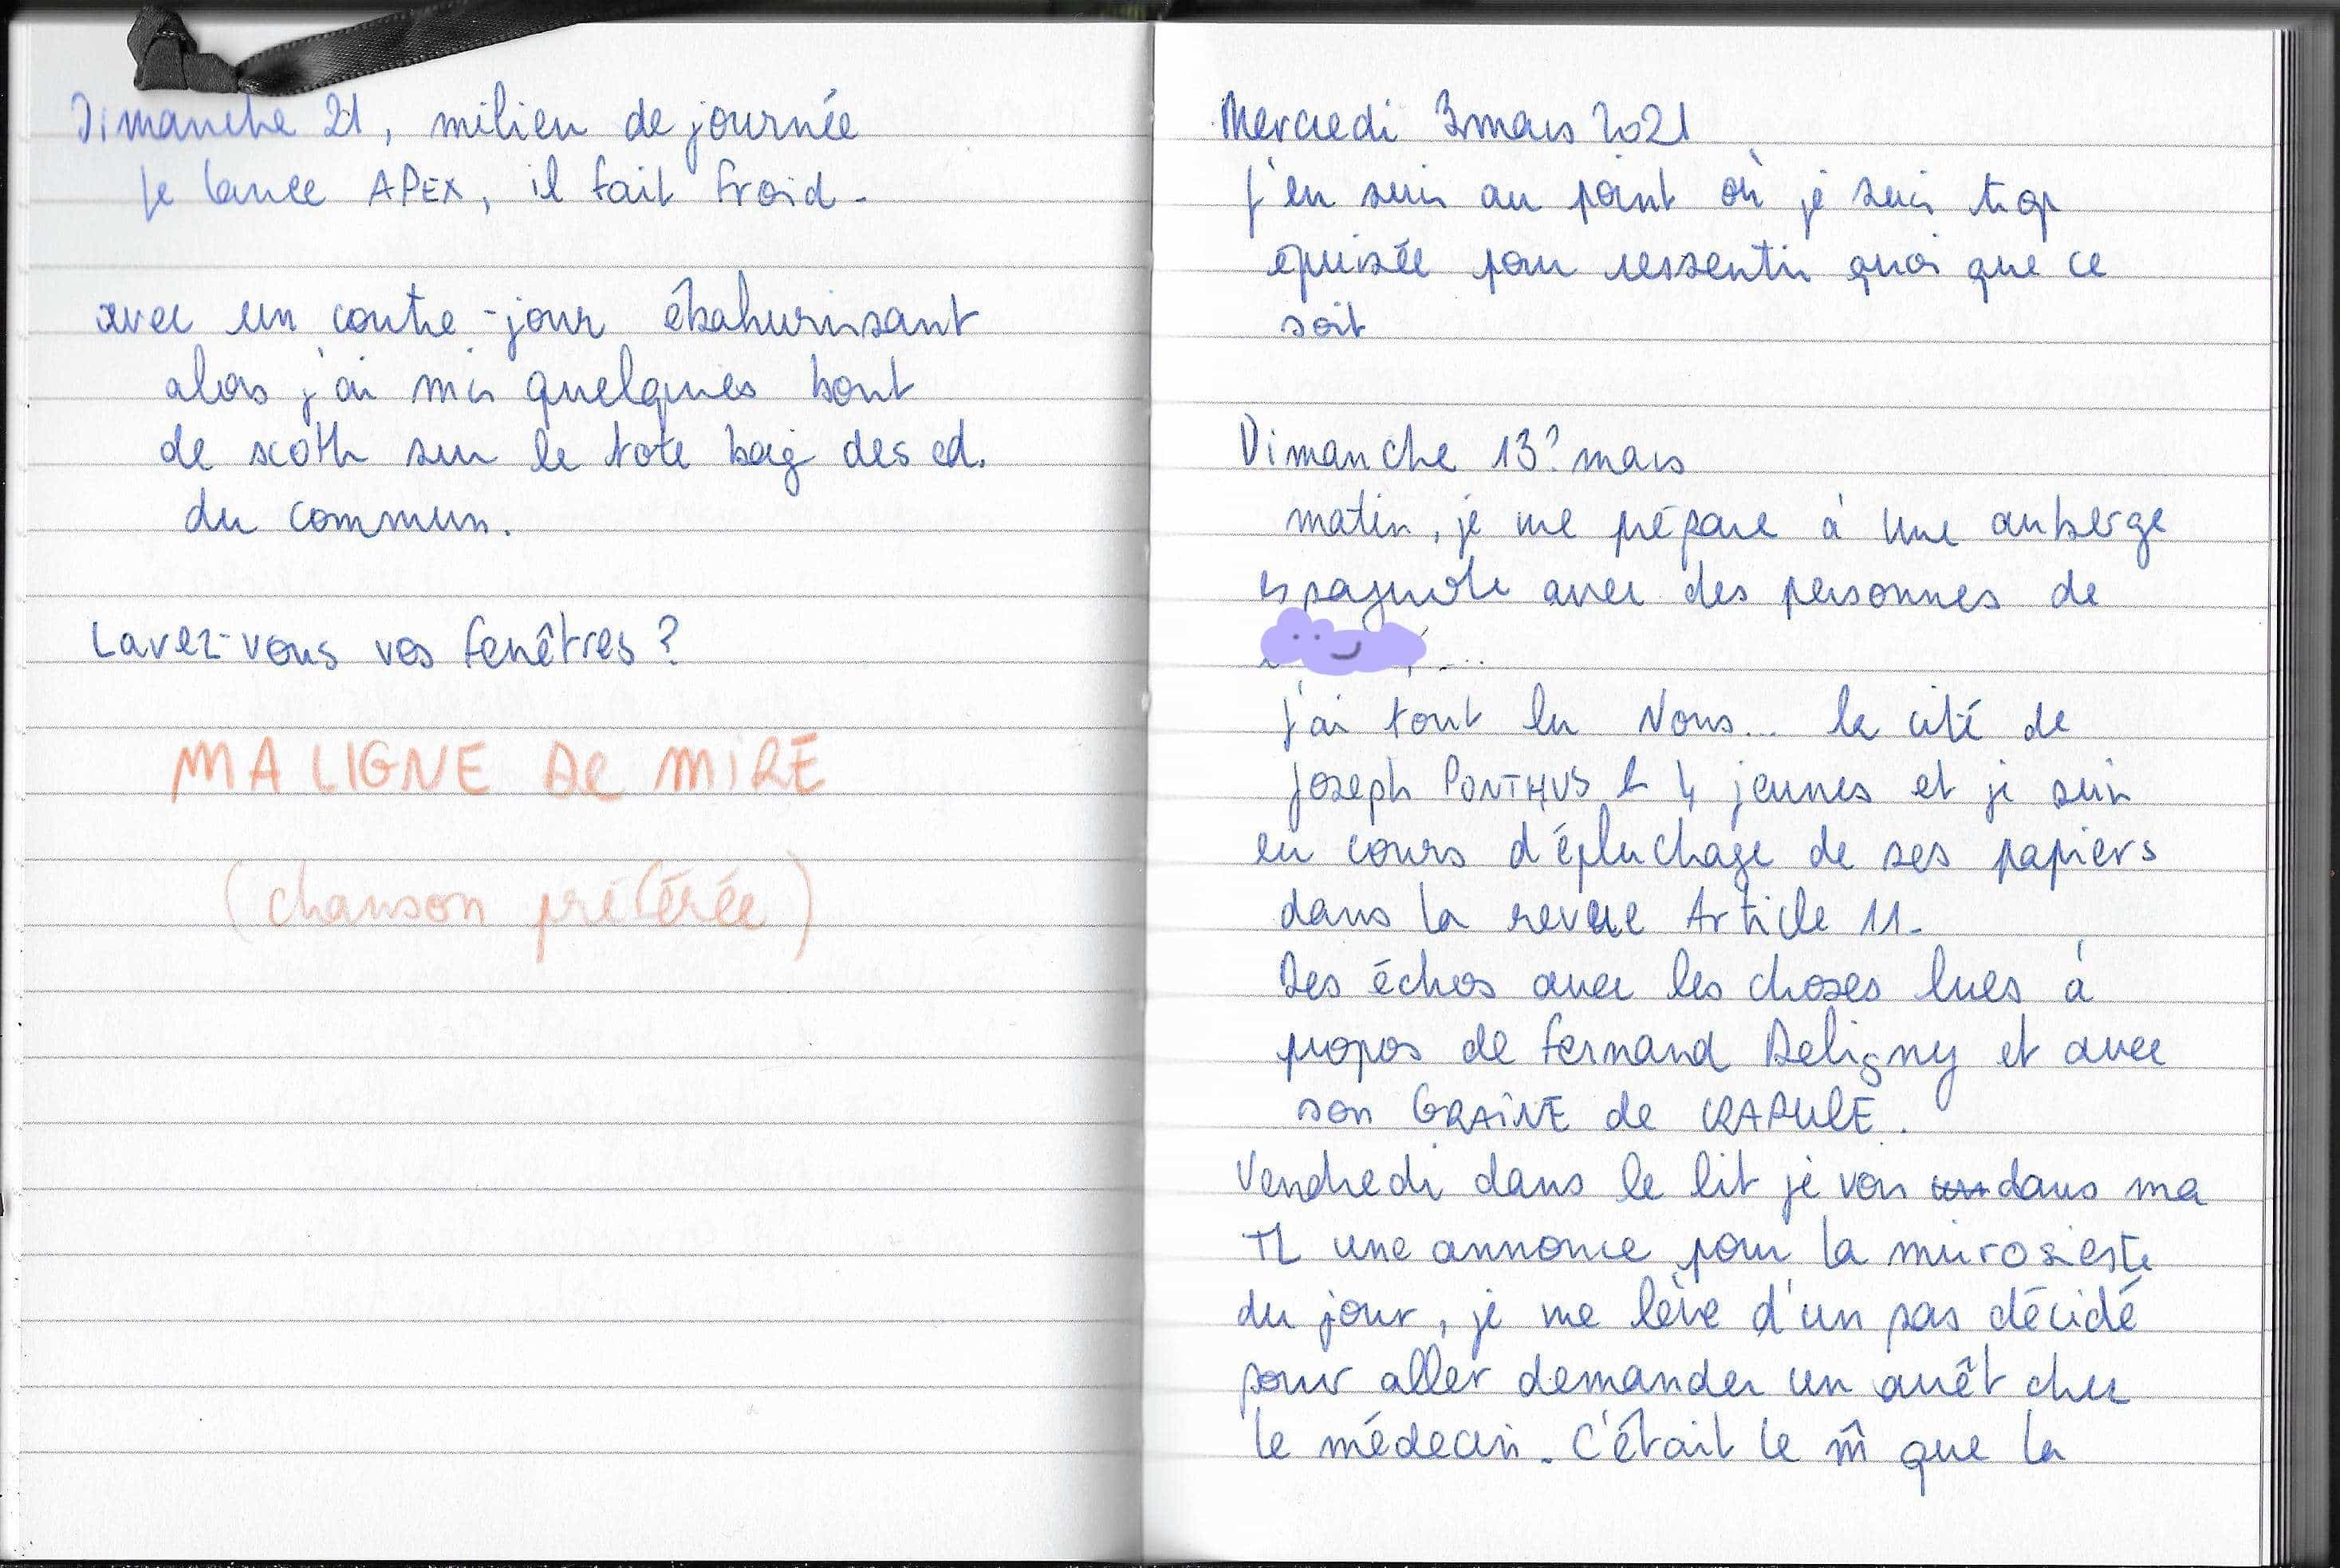 Dimanche 21, milieu de journée
je lance APEX, il fait froid.
avec un contre-jour ébahurissant
alors j'ai mis quelques bout
de scoth sur le tote bag des ed.
du commun.
Lavez-vous vos fenêtres ?
MA LIGNE DE MIRE
(chanson préférée)
Mercredi 3 mars 2021
j'en suis au point où je suis trop
épuisée pour ressentir quoi que ce
soit
Dimanche 13? mars
matin, je me prépare à une auberge
espagnole avec des personnes de
, ...
j'ai tout lu Nous... la cité de
Joseph PONTHUS & 4 jeunes et je suis
en cours d'épluchage de ses papiers
dans la revue Article 11.
Des échos avec les choses lues à
propos de Fernand Deligny et avec
son GRAINE de CRAPULE.
Vendredi dans le lit je vois dans ma
TL une annonce pour la microsieste
du jour, je me lève d'un pas décidé
pour aller demander un arrêt chez
le médecin. C'était le m̂ que la